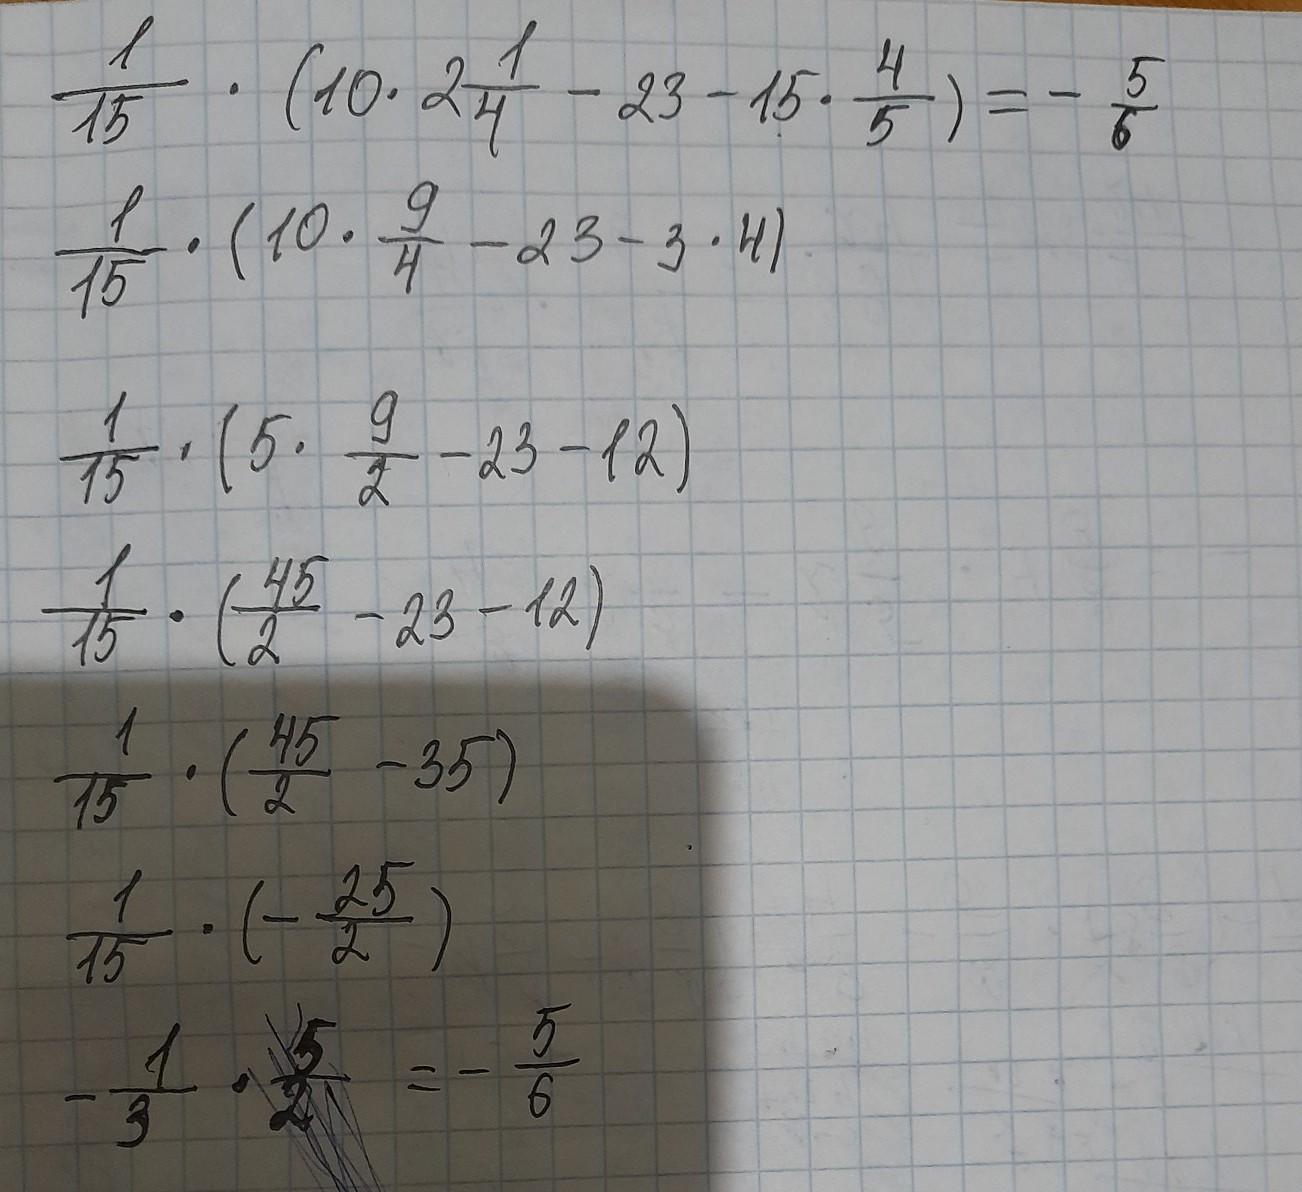 1/15 · (10 · 2 1/4 - 23 - 15 · 4/5) = - 5/6
1/15 · (10 · 9/4 - 23 - 3 · 4)
1/15 · (5 · 9/2 - 23 - 12)
1/15 · (45/2 - 23 - 12)
1/15 · (45/2 - 35)
1/15 · (- 25/2)
- 1/3 · 5/2 = - 5/6